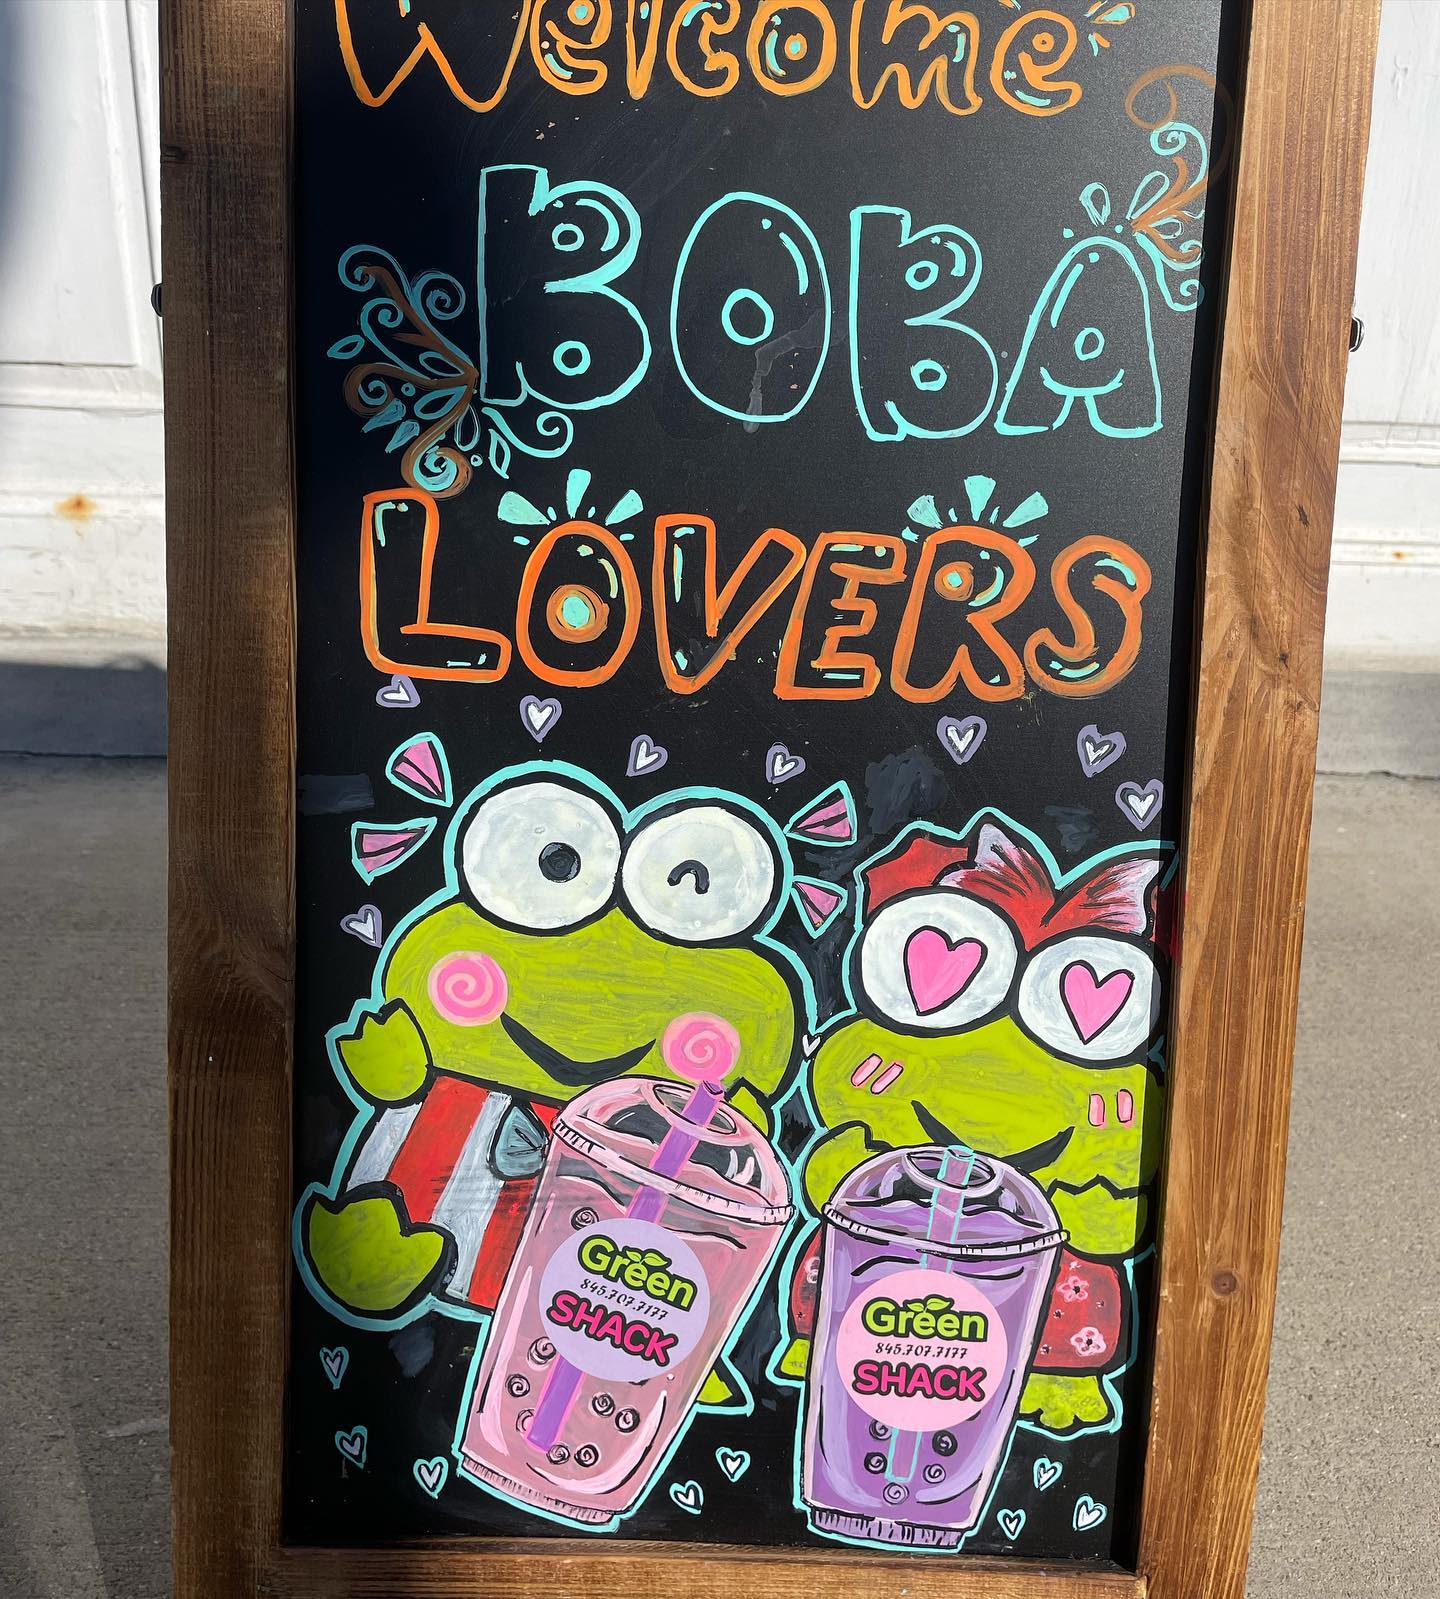 Welcome
BOBA
LOVERS
Green
845.707.7177
SHACK
Green
845.707.7177
SHACK